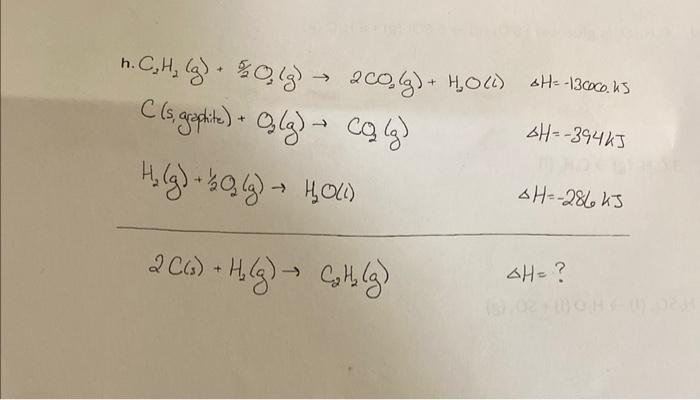 h. C₂H₂ (g) + 5/2 O₂ (g) → 2CO₂ (g) + H₂O (l) ΔH = -1300. kJ
C (s, graphite) + O₂ (g) → CO₂ (g) ΔH = -394 kJ
H₂ (g) + ½ O₂ (g) → H₂O (l) ΔH = -286 kJ
2 C(s) + H₂ (g) → C₂H₂ (g) ΔH = ?